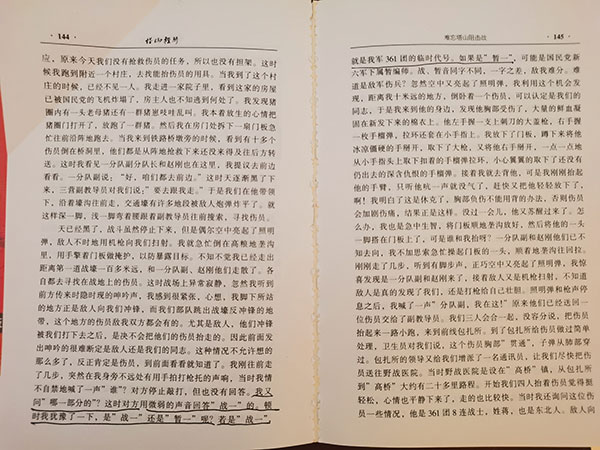 144
塔山难忘
应，原来今天我们没有抢救伤员的任务，所以也没有担架。这时
候我跑到附近一个村庄，去找能抬伤员的用具。当我到了这个村
庄的时候，已经不见一人。我走进一家院子里，看到这家的房屋
已被国民党的飞机炸塌了，房主人也不知逃到何处了。我发现猪
圈内有一头老母猪还有一群猪崽吱哇乱叫。我本着放生的心情把
猪圈门打开了，放跑了一群猪。然后我在房门处拆下一扇门板急
忙往前沿阵地跑去。当我回到铁路桥墩旁的时候，看到有十多个
伤员倒在桥洞里，他们都是从阵地抢救下来还没来得及往后方转
送。这时我看见一分队副分队长和赵刚也在这里，我提议去前边
看看。一分队副说：“好，咱们都去前边。”这时天逐渐黑了下
来，三营副教导员对我们说：“要去跟我走。”于是我们在他带领
下，沿着壕沟往前走，交通壕有许多地段被敌人炮弹炸平了。就
这样深一脚，浅一脚弯着腰跟着副教导员往前搜索，寻找伤员。
天已经黑了，战斗虽然停止下来，但是偶尔空中又亮起了照明
弹，敌人不时地用机枪向我们扫射。我就急忙倒在高粱地垄沟
里，用手擎着门板做掩护，以防暴露目标。不知不觉我已经走出
距离第一道战壕一百多米远，和一分队副、赵刚他们走散了。各
自都去寻找在战地上的伤员。这时战场上异常寂静，忽然我听到
前方传来时隐时现的呻吟声，我感到很紧张，心想，我脚下所站
的地方正是敌人向我们冲锋，而我们部队跳出战壕反冲锋的地
带，这个地方的伤员敌我双方都会有的。尤其是敌人，他们冲锋
被我们打下去之后，是决不会把他们的伤员抬走的。因此前面发
出呻吟的很难断定是敌人还是我们的同志。这种情况不允许想的
那么多了，反正肯定是伤员，到前面看看就知道了。我刚往前走
了几步，突然在我身旁不远处有用手拍打枪托的声响，当时我情
不自禁地喊了一声“谁”？对方停止敲打，但也没有回答。我又
问“哪一部分的”？这时对方用微弱的声音回答“战一”的。顿
时我犹豫了一下，是“战一”还是“暂一”呢？若是“战一”，
难忘塔山阻击战
·145·
就是我军361团的临时代号。如果是“暂一”，可能是国民党新
六军下属暂编师。战、暂音同字不同，一字之差，敌我难分。难
道是敌军伤兵？忽然空中又亮起了照明弹，我利用这个机会发
现，距离我十米远的地方，倒卧着一个伤员，可以认定是我们的
同志，于是我来到他的身边，发现他胸部受伤了，大量的鲜血凝
固在新发下来的棉衣上。他左手握一支上刺刀的大盖枪，右手握
一枚手榴弹，拉环还套在小手指上。我放下了门板，蹲下来将他
冰凉僵硬的手掰开，取下了大枪，又将他右手掰开，一点一点地
从小手指头上取下扣着的手榴弹拉环，小心翼翼的取下了还没有
仍出去的深含仇恨的手榴弹。接着我就去背他，可是我刚刚抬起
他的手臂，只听他吭一声就没气了，赶快又把他轻轻放下了，
啊！我明白了这是休克了，胸部负伤不能用背的办法，否则伤员
会加剧伤痛，结果正是这样。没过一会儿，他又苏醒过来了。怎
么办，我也是急中生智，将门板顺地垄沟放好，然后将他的一头
一脚搭在门板上了，可是谁和我抬呀？一分队副和赵刚他们已不
知去向，我不加思索急忙操起门板的一头，顺着地垄沟往回拉。
刚刚走了几步，听到有脚步声，正巧空中又亮起了照明弹，我惊
喜发现是一分队副和赵刚来了。接着敌人又是机枪扫射，不知道
敌人是真的发现了我们，还是打枪给自己壮胆。照明弹和枪声停
息之后，我喊了一声“分队副，我在这！”原来他们已经送回一
位伤员交给了副教导员。我们三人会合一起，没容分说，把伤员
抬起来一路小跑，来到前线包扎所。到了包扎所给伤员做过简单
处理，卫生员对我们说，这个伤员胸部“贯通”，子弹从肺部穿
过。包扎所的领导又给我们增派了一名通讯员，让我们尽快把伤
员送往野战医院。当时野战医院是设在“高桥”镇，从包扎所
到“高桥”大约有二十多里路程。开始我们四人抬着伤员觉得挺
轻松，心情也平静下来了，走的也比较快。当时我还询问这位伤
员一些情况，他是361团8连战士，姓蒋，也是东北人。敌人向